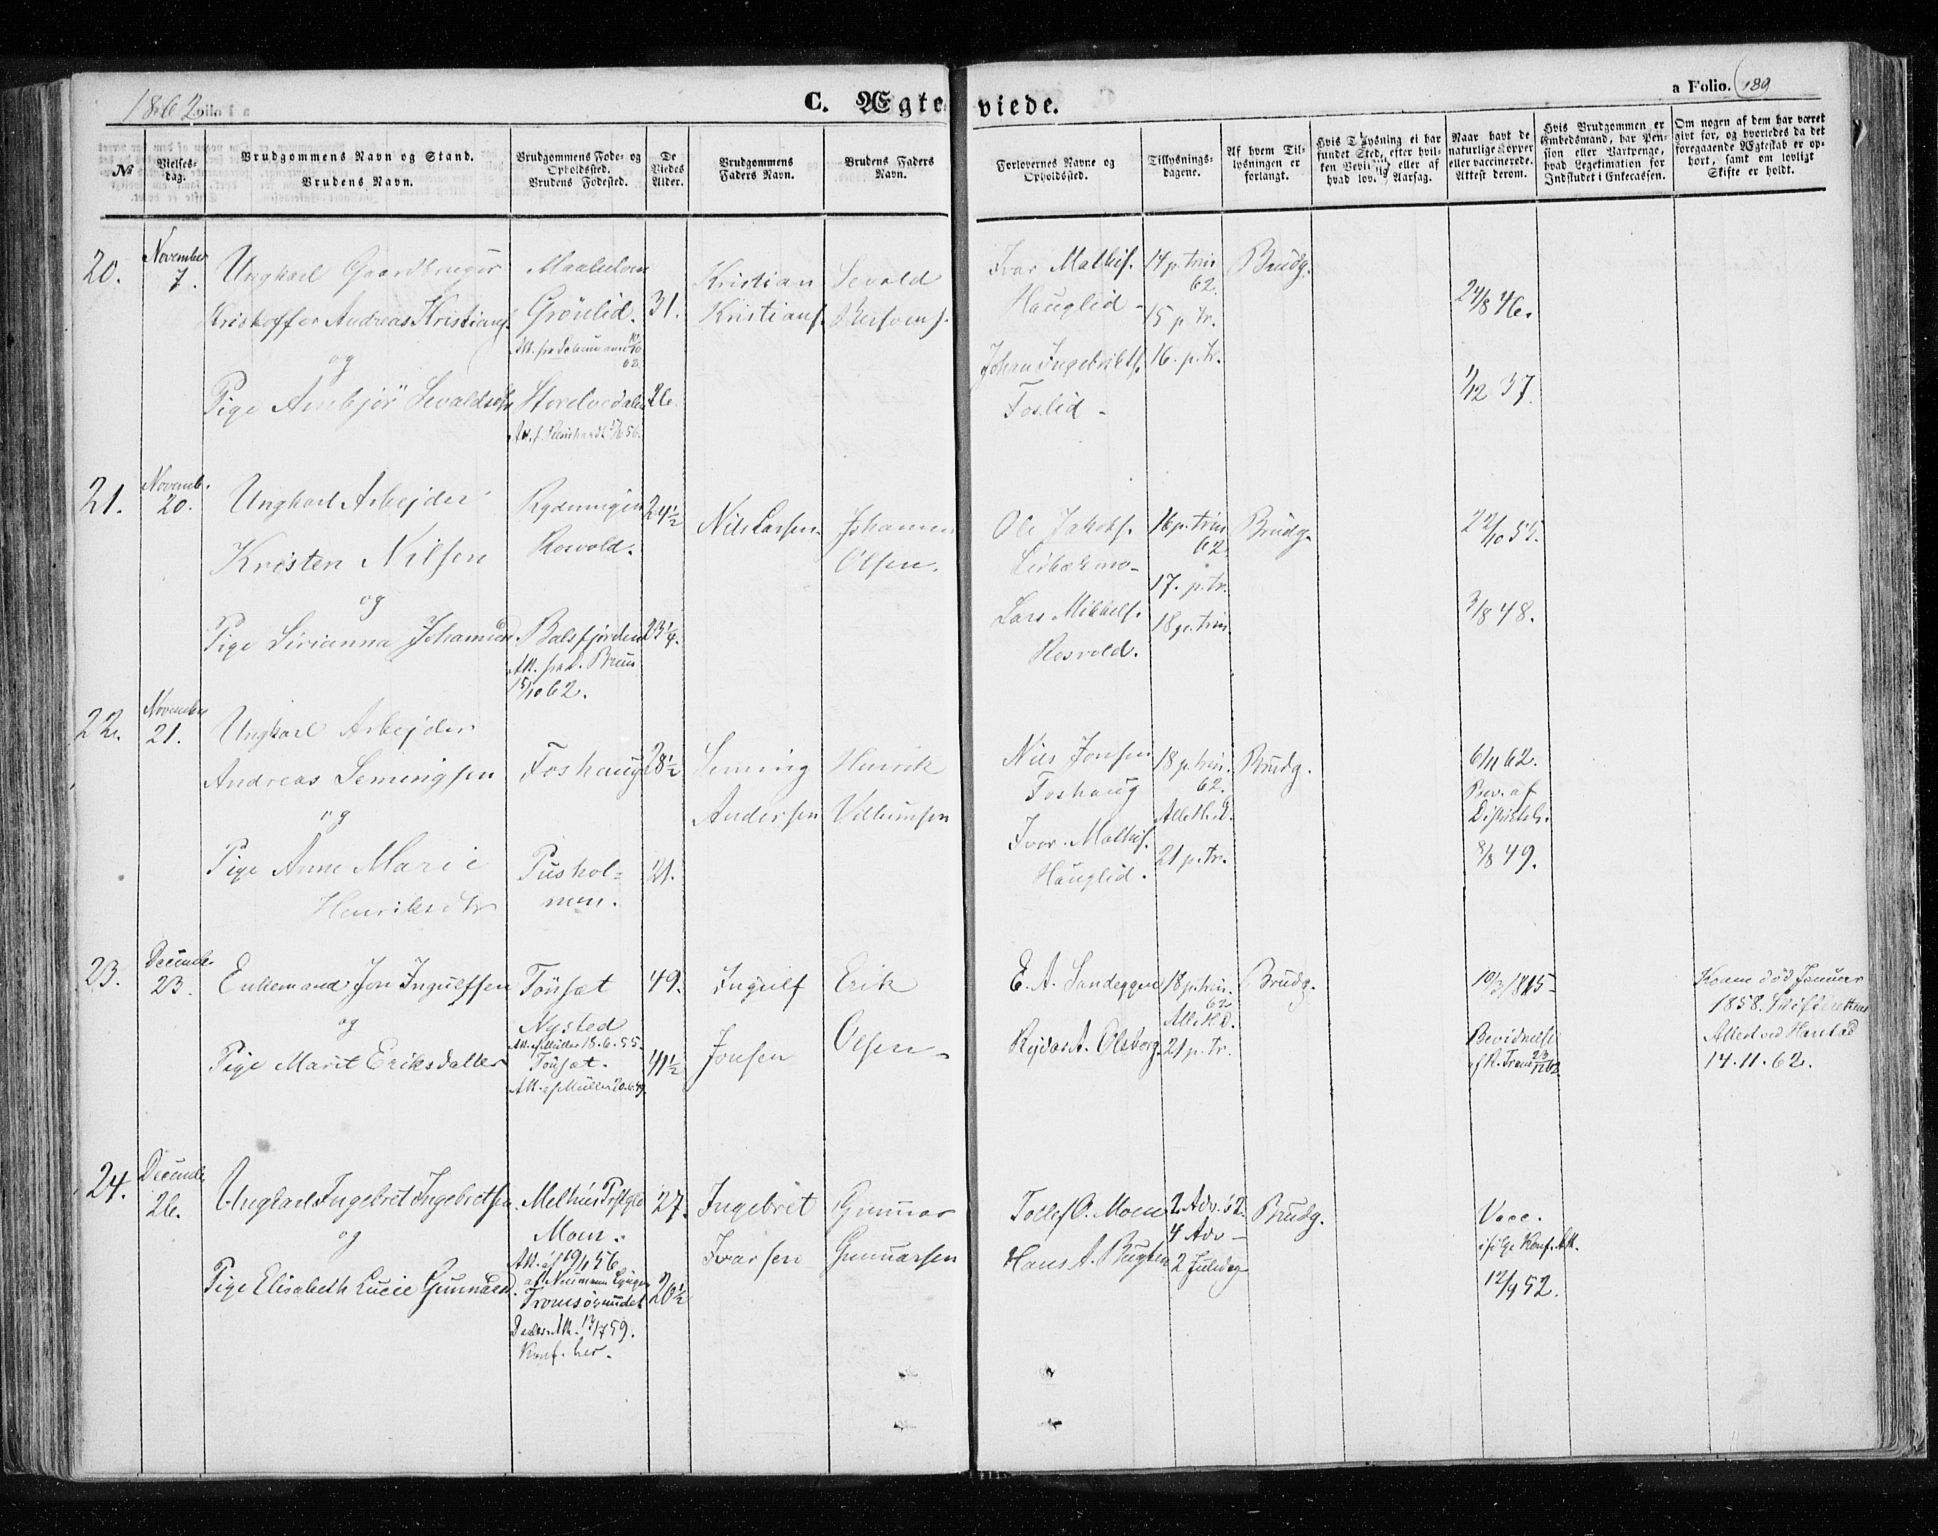 1862
C. Ægteviede.
a Folio. 189
No
Vielses-dag.
Brudgommens Navn og Stand.
Brudens Navn.
Brudgommens Føde- og Opholdssted.
Brudens Fødested.
De Viedes Alder.
Brudgommens Faders Navn.
Brudens Faders Navn.
Forlovernes Navne og Opholdssted.
Tillysnings-dagene.
Af hvem Tillysningen er forlangt.
Hvis Tillysning ei har fundet Sted, efter hvilken Bevilling eller af hvad lovlig Aarsag.
Naar havt de naturlige Kopper eller vaccinerede. Attest derom.
Hvis Brudgommen er Embedsmand, har Pension eller Vartpenge, hvad Legitimation for Indskudet i Enkecassen.
Om nogen af dem har været givt før, og hvorledes da det foregaaende Ægteskab er ophørt, samt om lovligt Skifte er holdt.
20.
November 7.
Ungkarl Gaardbruger
Kristoffer Andreas Kristians.
og
Pige Anbjør Sevaldsdtr
Maalselven
Grönlid.
Storelvedalen
31.
26.
Kristian
Kristians.
Sevald
Ivar Mathis.
Hauglid
Johan Ingebrikts.
Foslid
14 p. trin 62.
15 p. tr.
16. p. tr.
Brudg.
24/8 46.
1/12 37.
21.
Novemb. 20.
Ungkarl Arbejder
Kristen Nilsen
og
Pige Sirianna Johansen
Rydningen
Rosvold.
Balsfjorden
Att. fra P. Bruun
15/10 62.
24½
23¼.
Nils Larsen
Johannes
Olsen.
Ole Jakobs.
Lars Mikkels.
Rosvold.
16 p. trin 62.
17. p. tr.
18 p. trin.
Brudg.
22/10 55.
3/8 48.
22.
November 21.
Ungkarl Arbejder
Andreas Semingsen
og
Pige Anne Marie
Henriksdtr
Foshaug
Pushol=
men.
28½
21.
Seming
Andersen
Henrik
Villumsen
Nils Jonsen
Foshaug
Ivar Mathis.
Hauglid.
18 p. trin. 62.
Alle H. D.
21 p. tr.
Brudg.
6/11 62.
Bev. af
Distriktsl.
8/8 49.
23.
Decemb. 23.
Enkemand Jon Ingulfsen
og
Pige Marit Eriksdatter
Tönset
Nysted
Att. af Müller 18.6.55.
Tönset.
Att. af Müller 20.6.49.
49.
41½
Ingulf
Jonsen
Erik
Olsen
E. A. Sandeggen
Rejdar A. Olsborg.
18 p. trin. 62
Alle H. D.
21 p. tr.
Brudg.
10/3 1815
Bevidnelse
Konen död Januar
1858. Skifterettens
Attest ved Harstad
14.11.62.
24.
Decemb. 26.
Ungkarl Ingebret Ingebretsen
og
Pige Elisabeth Lucie Gunnarsd.
Melhus Prstgld
Moen.
Tromsösundet
Konf. her.
27.
20½
Ingebret
Ivarsen
Gunnar
Gunnarsen
Tollef O. Moen
Hans A. Bugten
2 Adv. 62.
4 Adv
2 Juledag
Brudg.
Vacc.
ifölge Konf. Att.
12/9 52.